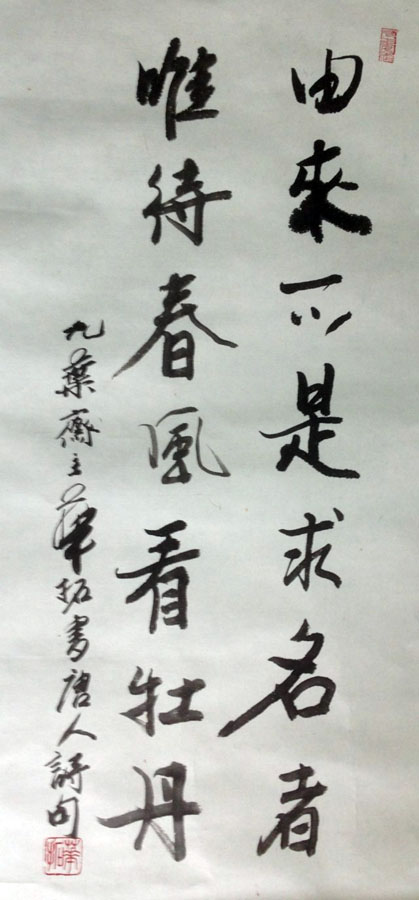 由來不是求名者
唯待春風看牡丹
九葉齋主華拓書唐人詩句